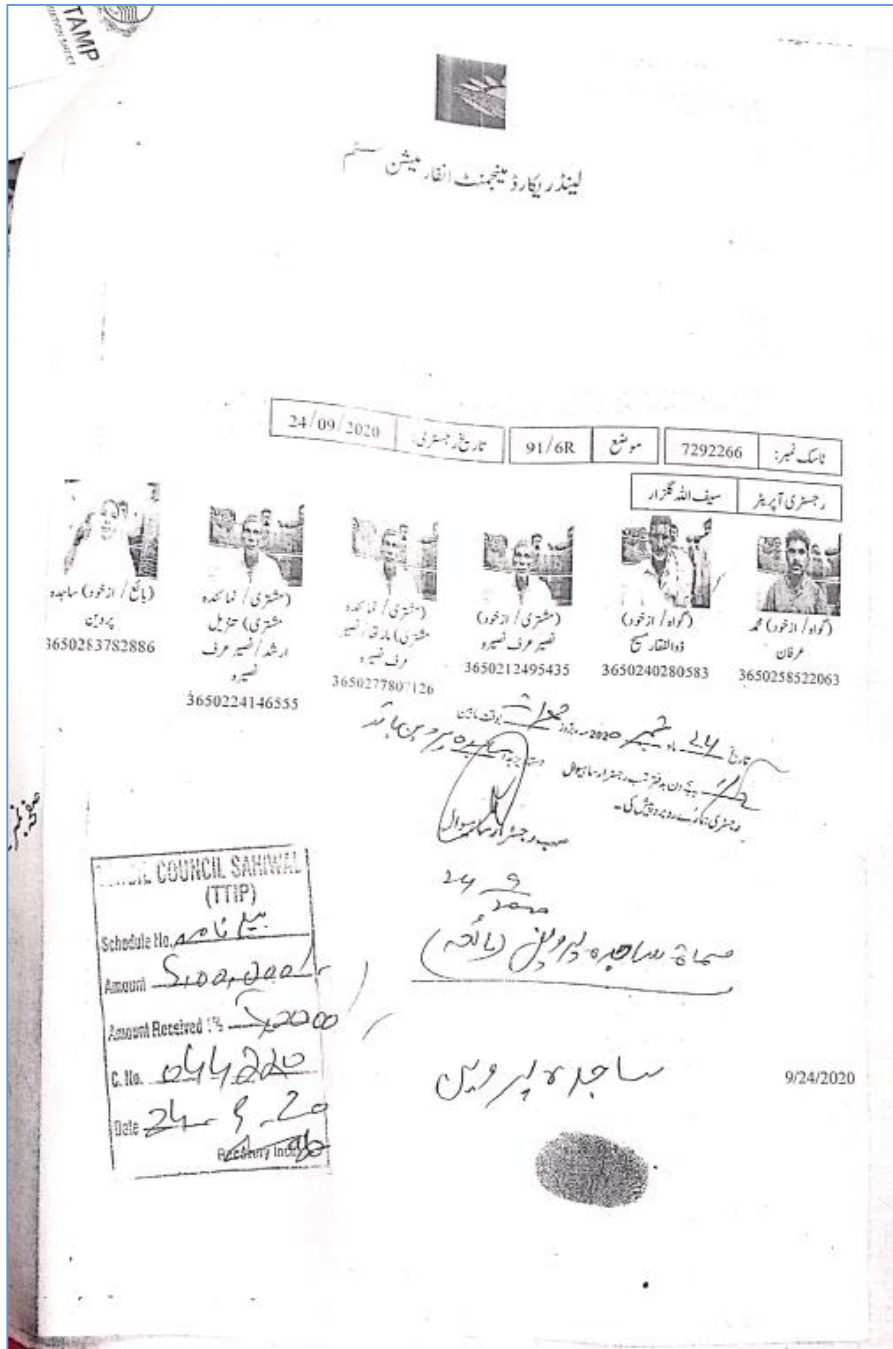 TAMP
لینڈ ریکارڈ مینجمنٹ انفارمیشن سسٹم
ٹاسک نمبر: 7292266 موضع 91/6R تاریخ رجسٹری: 24/09/2020
رجسٹری آپریٹر سیف اللہ گلزار
(گواہ/ ازخود) محمد عرفان
3650258522063
(گواہ/ ازخود) ذوالفقار مسیح
3650240280583
(مشتری/ ازخود) نصیر عرف نصیرہ
3650212495435
(مشتری/ نمائندہ مشتری) نصیر عرف نصیرہ
3650277807126
(مشتری/ نمائندہ مشتری) تنزیل ارشد/ نصیر عرف نصیرہ
3650224146555
(بائع/ ازخود) ساجدہ پروین
3650283782886
تاریخ 24 ماہ ستمبر 2020 بروز بوقت مابین
بجے دن بدفتر سب رجسٹرار ساہیوال
رجسٹری ہمارے روبرو پیش کی۔
سب رجسٹرار ساہیوال
24 9 2020
مسماۃ ساجدہ پروین (بائعہ)
ساجدہ پروین
9/24/2020
COUNCIL SAHIWAL
(TTIP)
Schedule No. بیع نامہ
Amount 500,000/-
Amount Received 1% 5000
C. No. 044220
Date 24-9-20